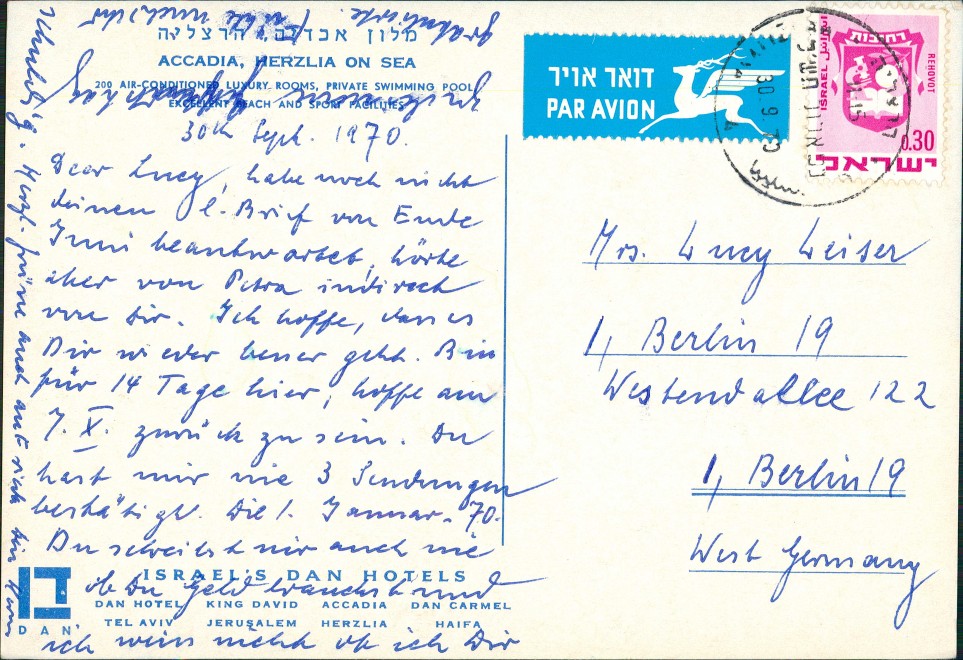 מלון אכדיה הרצליה
ACCADIA, HERZLIA ON SEA
200 AIR-CONDITIONED LUXURY ROOMS, PRIVATE SWIMMING POOL
EXCELLENT BEACH AND SPORT FACILITIES
30th Sept. 1970.
Dear Lucy, habe noch nicht
deinen l. Brief von Ende
Juni beantwortet, hörte
aber von Petra indirect
von Dir. Ich hoffe, dass es
Dir wieder besser geht. Bin
für 14 Tage hier, hoffe am
7. X. zurück zu sein. Du
hast mir nie 3 Sendungen
bestätigt. Die 1. Januar. 70.
Du schreibst mir auch nie
ob Du Geld brauchst und
ich weiss nicht ob ich Dir
ISRAEL'S DAN HOTELS
DAN HOTEL KING DAVID ACCADIA DAN CARMEL
TEL AVIV JERUSALEM HERZLIA HAIFA
DAN
דואר אויר
PAR AVION
רחובות
ISRAEL
REHOVOT
0.30
ישראל
30.9.70
Mrs. Lucy Leiser
1, Berlin 19
Westendallee 122
1, Berlin 19
West Germany